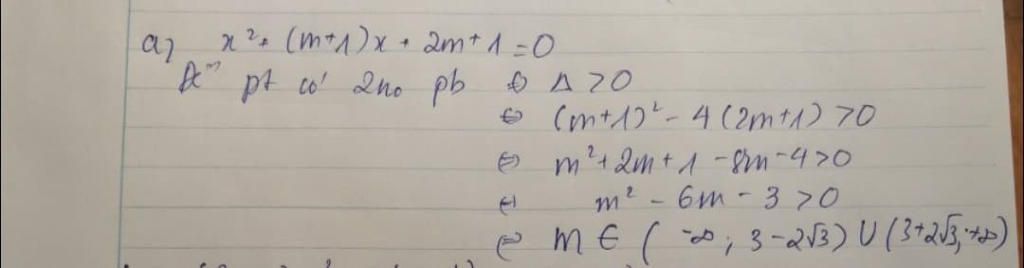 a, x² + (m+1)x + 2m+1 = 0
Để pt có 2no pb ⇔ Δ > 0
⇔ (m+1)² - 4(2m+1) > 0
⇔ m² + 2m + 1 - 8m - 4 > 0
⇔ m² - 6m - 3 > 0
⇔ m ∈ (-∞; 3-2√3) ∪ (3+2√3; +∞)